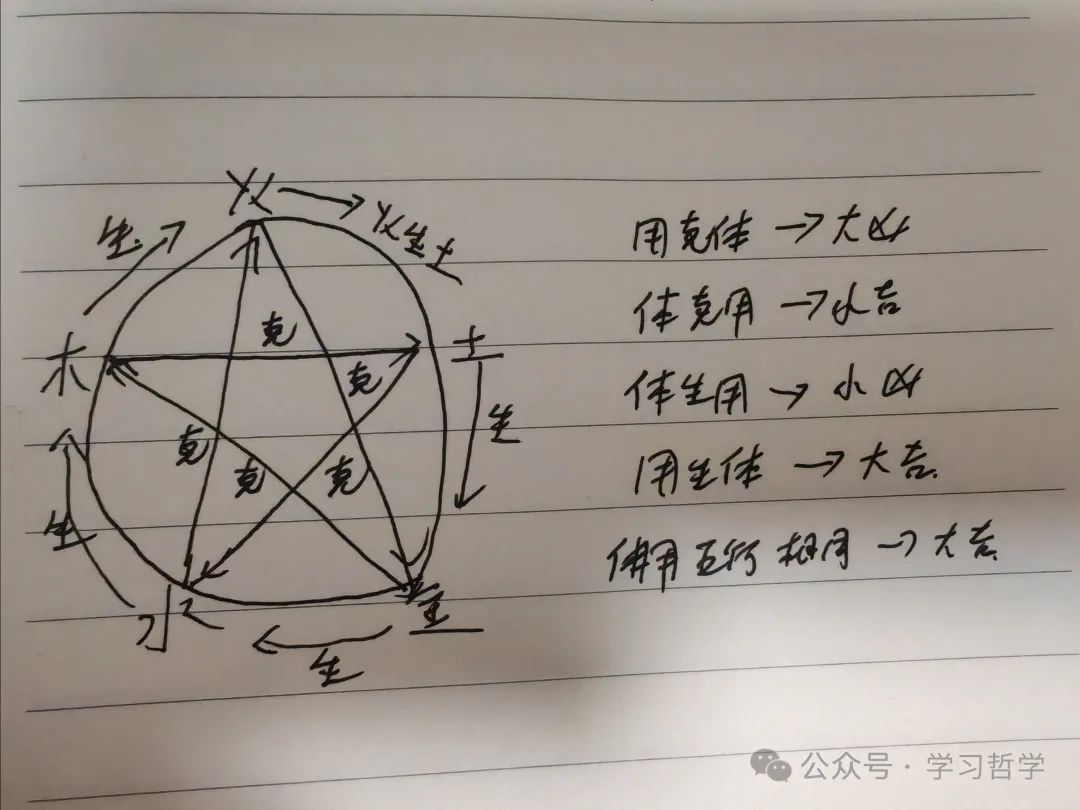 火
火生土
生
用克体 → 大凶
克
体克用 → 小吉
木
土
克
生
体生用 → 小凶
克
克
克
用生体 → 大吉
生
体用五行相同 → 大吉
水
金
生
公众号 · 学习哲学